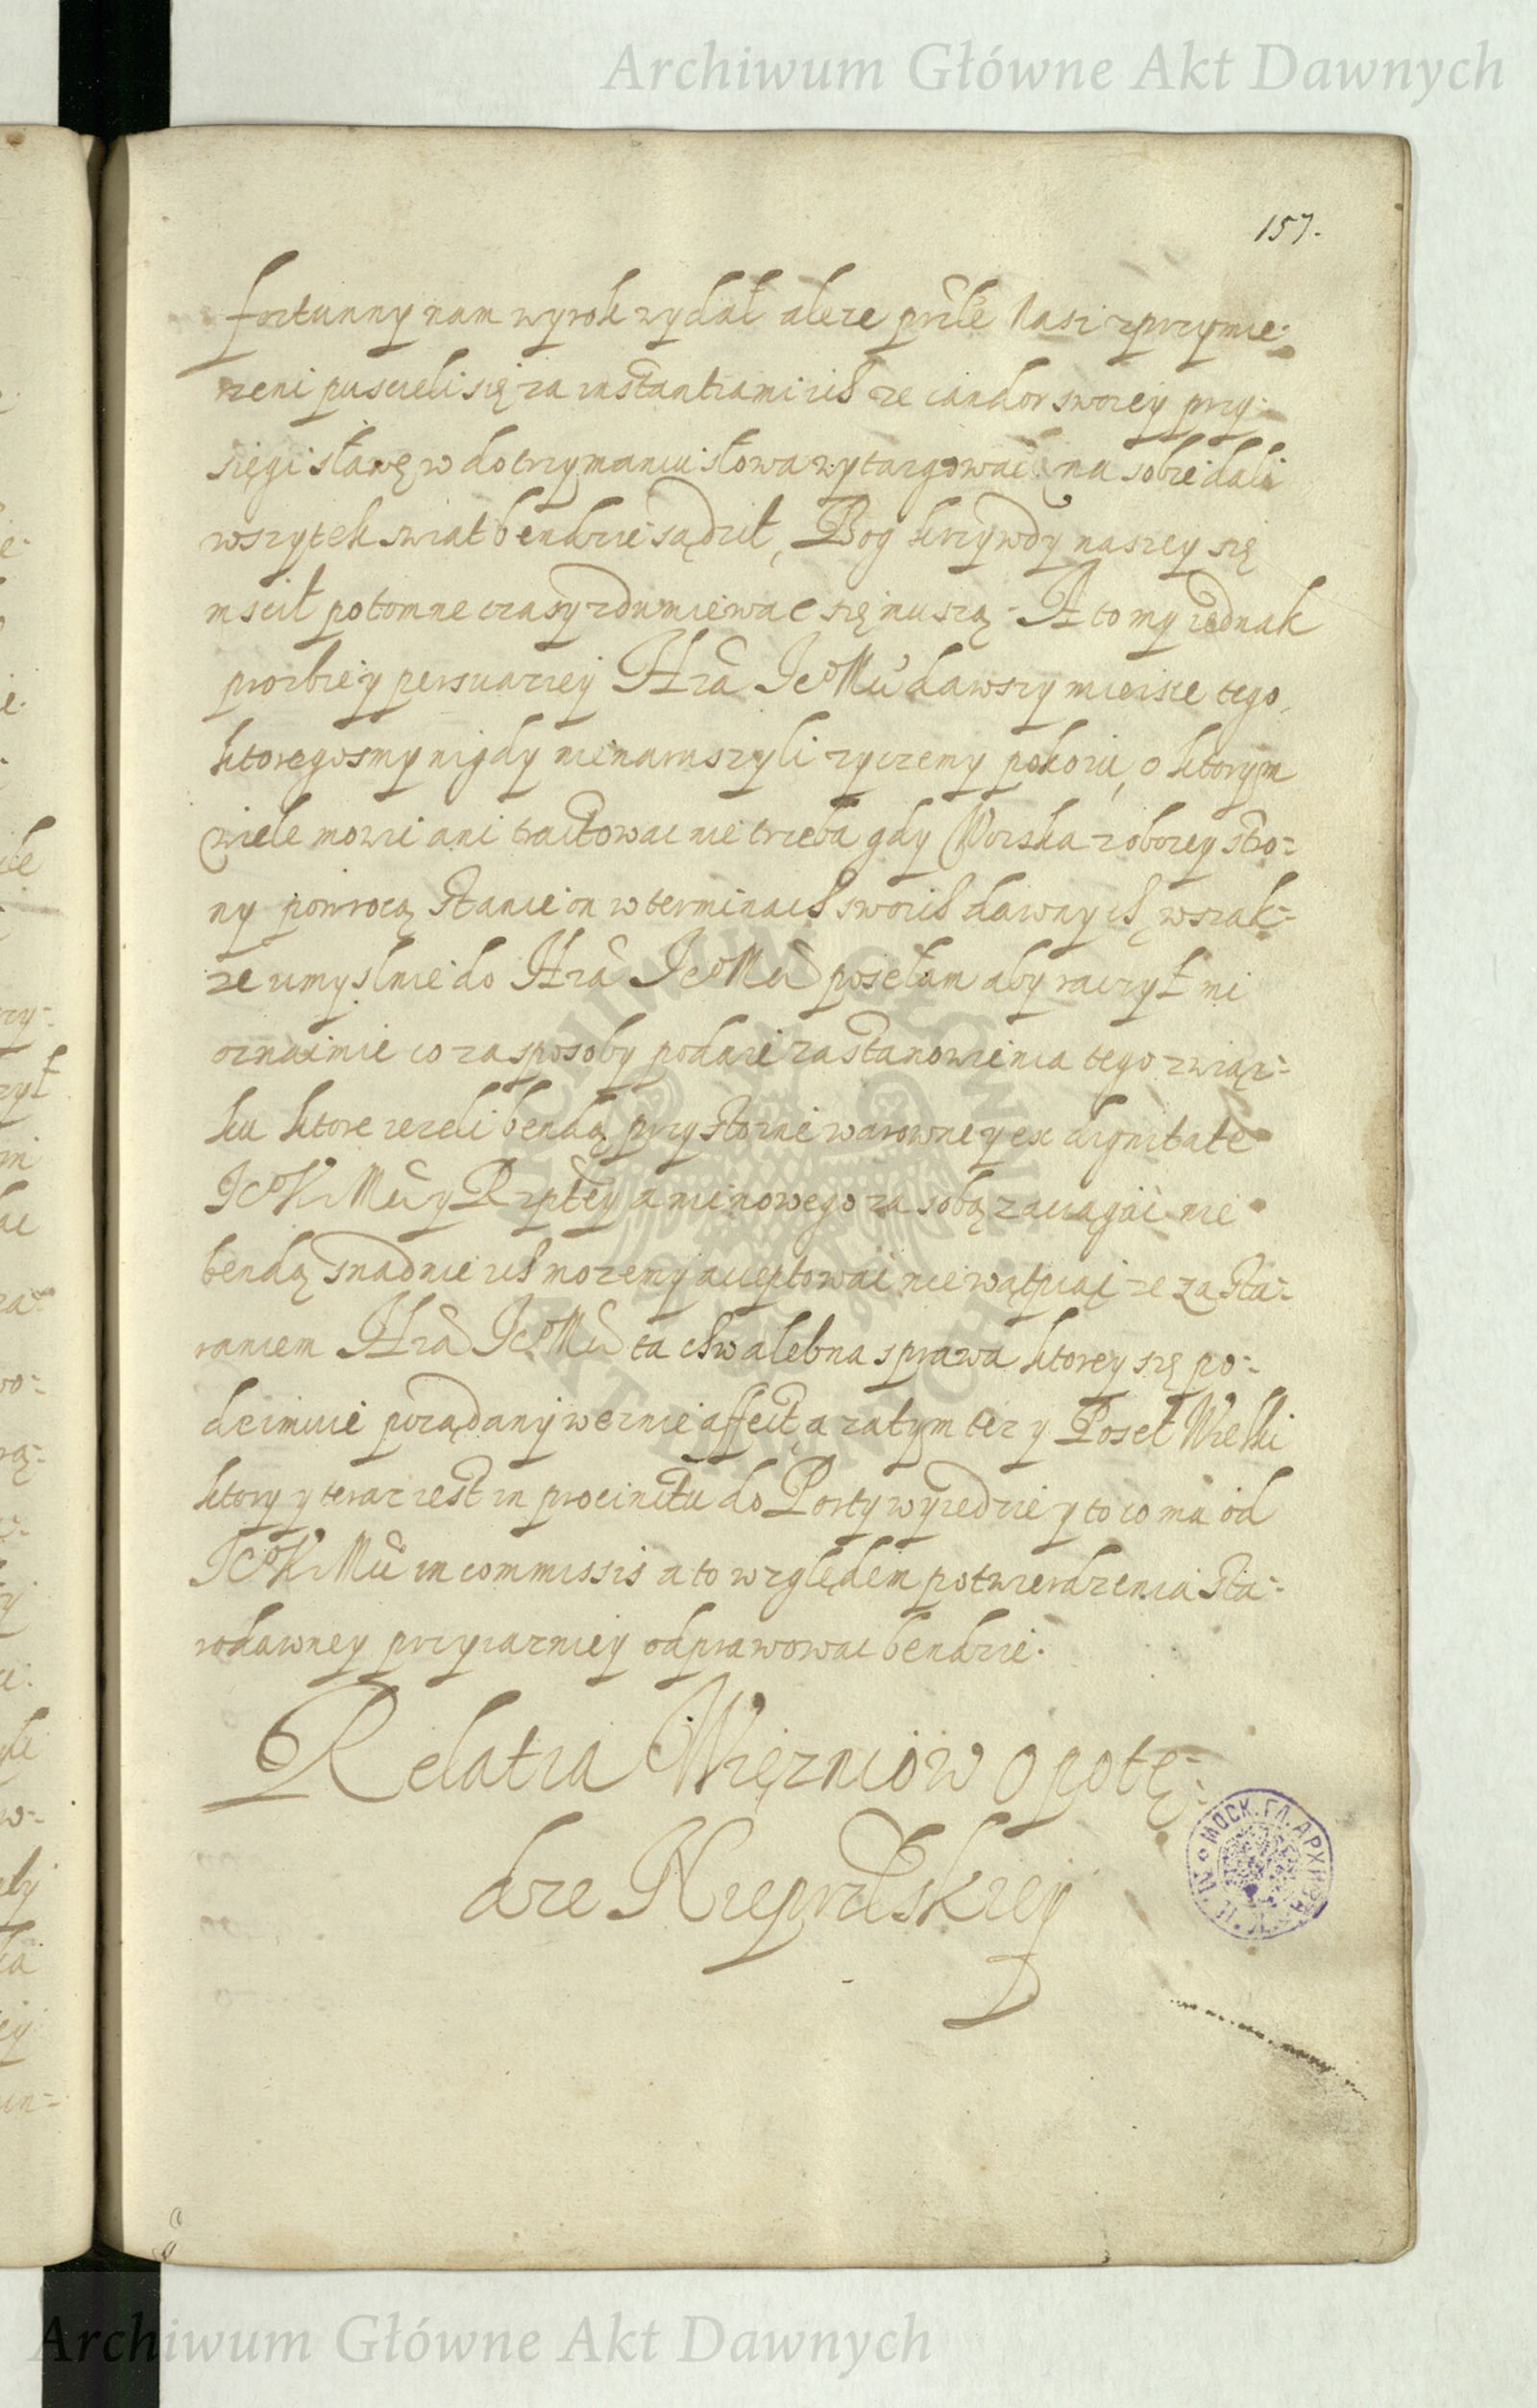 Archiwum Główne Akt Dawnych
157.
fortunny nam wyrok wydał aleze prźłe Nasi zprzymie-
rzeni puscieli się za instantiami ich ze candor swoiey przy-
sięgi sławę w dotrzymaniu słowa wytargować na sobie dali
wszytek swiat bendzie sądził, Bog krzywdy naszey się
mscił potomne czasy zdumiewac się muszą. A to my iednak
prozbie y persuaziey Hrá Ic° Mći dawszy mieisce tego,
ktoregosmy nigdy nienaruszyli zyczemy pokoiu, o ktorym
wiele mowic ani tractowac nie trzeba gdy Woyska z obozey stro-
ny powrocą stanie on w terminach swoich dawnych, wszak-
ze umyslnie do Hrá Ic° Mći posełam aby raczył mi
oznaimic co za sposoby podaie zastanowienia tego związ-
ku ktore iezeli bendą przystoine warowne y ex dignitate
Ic° K Mći y Rzpltey a nic nowego za sobą zaciągac nie
bendą snadnie ich mozemy acceptowac nie wątpiąc ze za sta-
raniem Hrá Ic° Mći ta chwalebna sprawa ktorey się po-
deimuie porądany wezmie affect, a zatym tez y Poseł Wielki
ktory y teraz iest in procinctu do Porty wyiedzie y to co ma od
Ic° K Mći in commissis a to względem potwierdzenia sta-
rodawney przyiazniey odprawowac bendzie.
Relatia Więzniow o potę-
dze Nieprźlskiey
МОСК. ГЛ. АРХИВА
Archiwum Główne Akt Dawnych